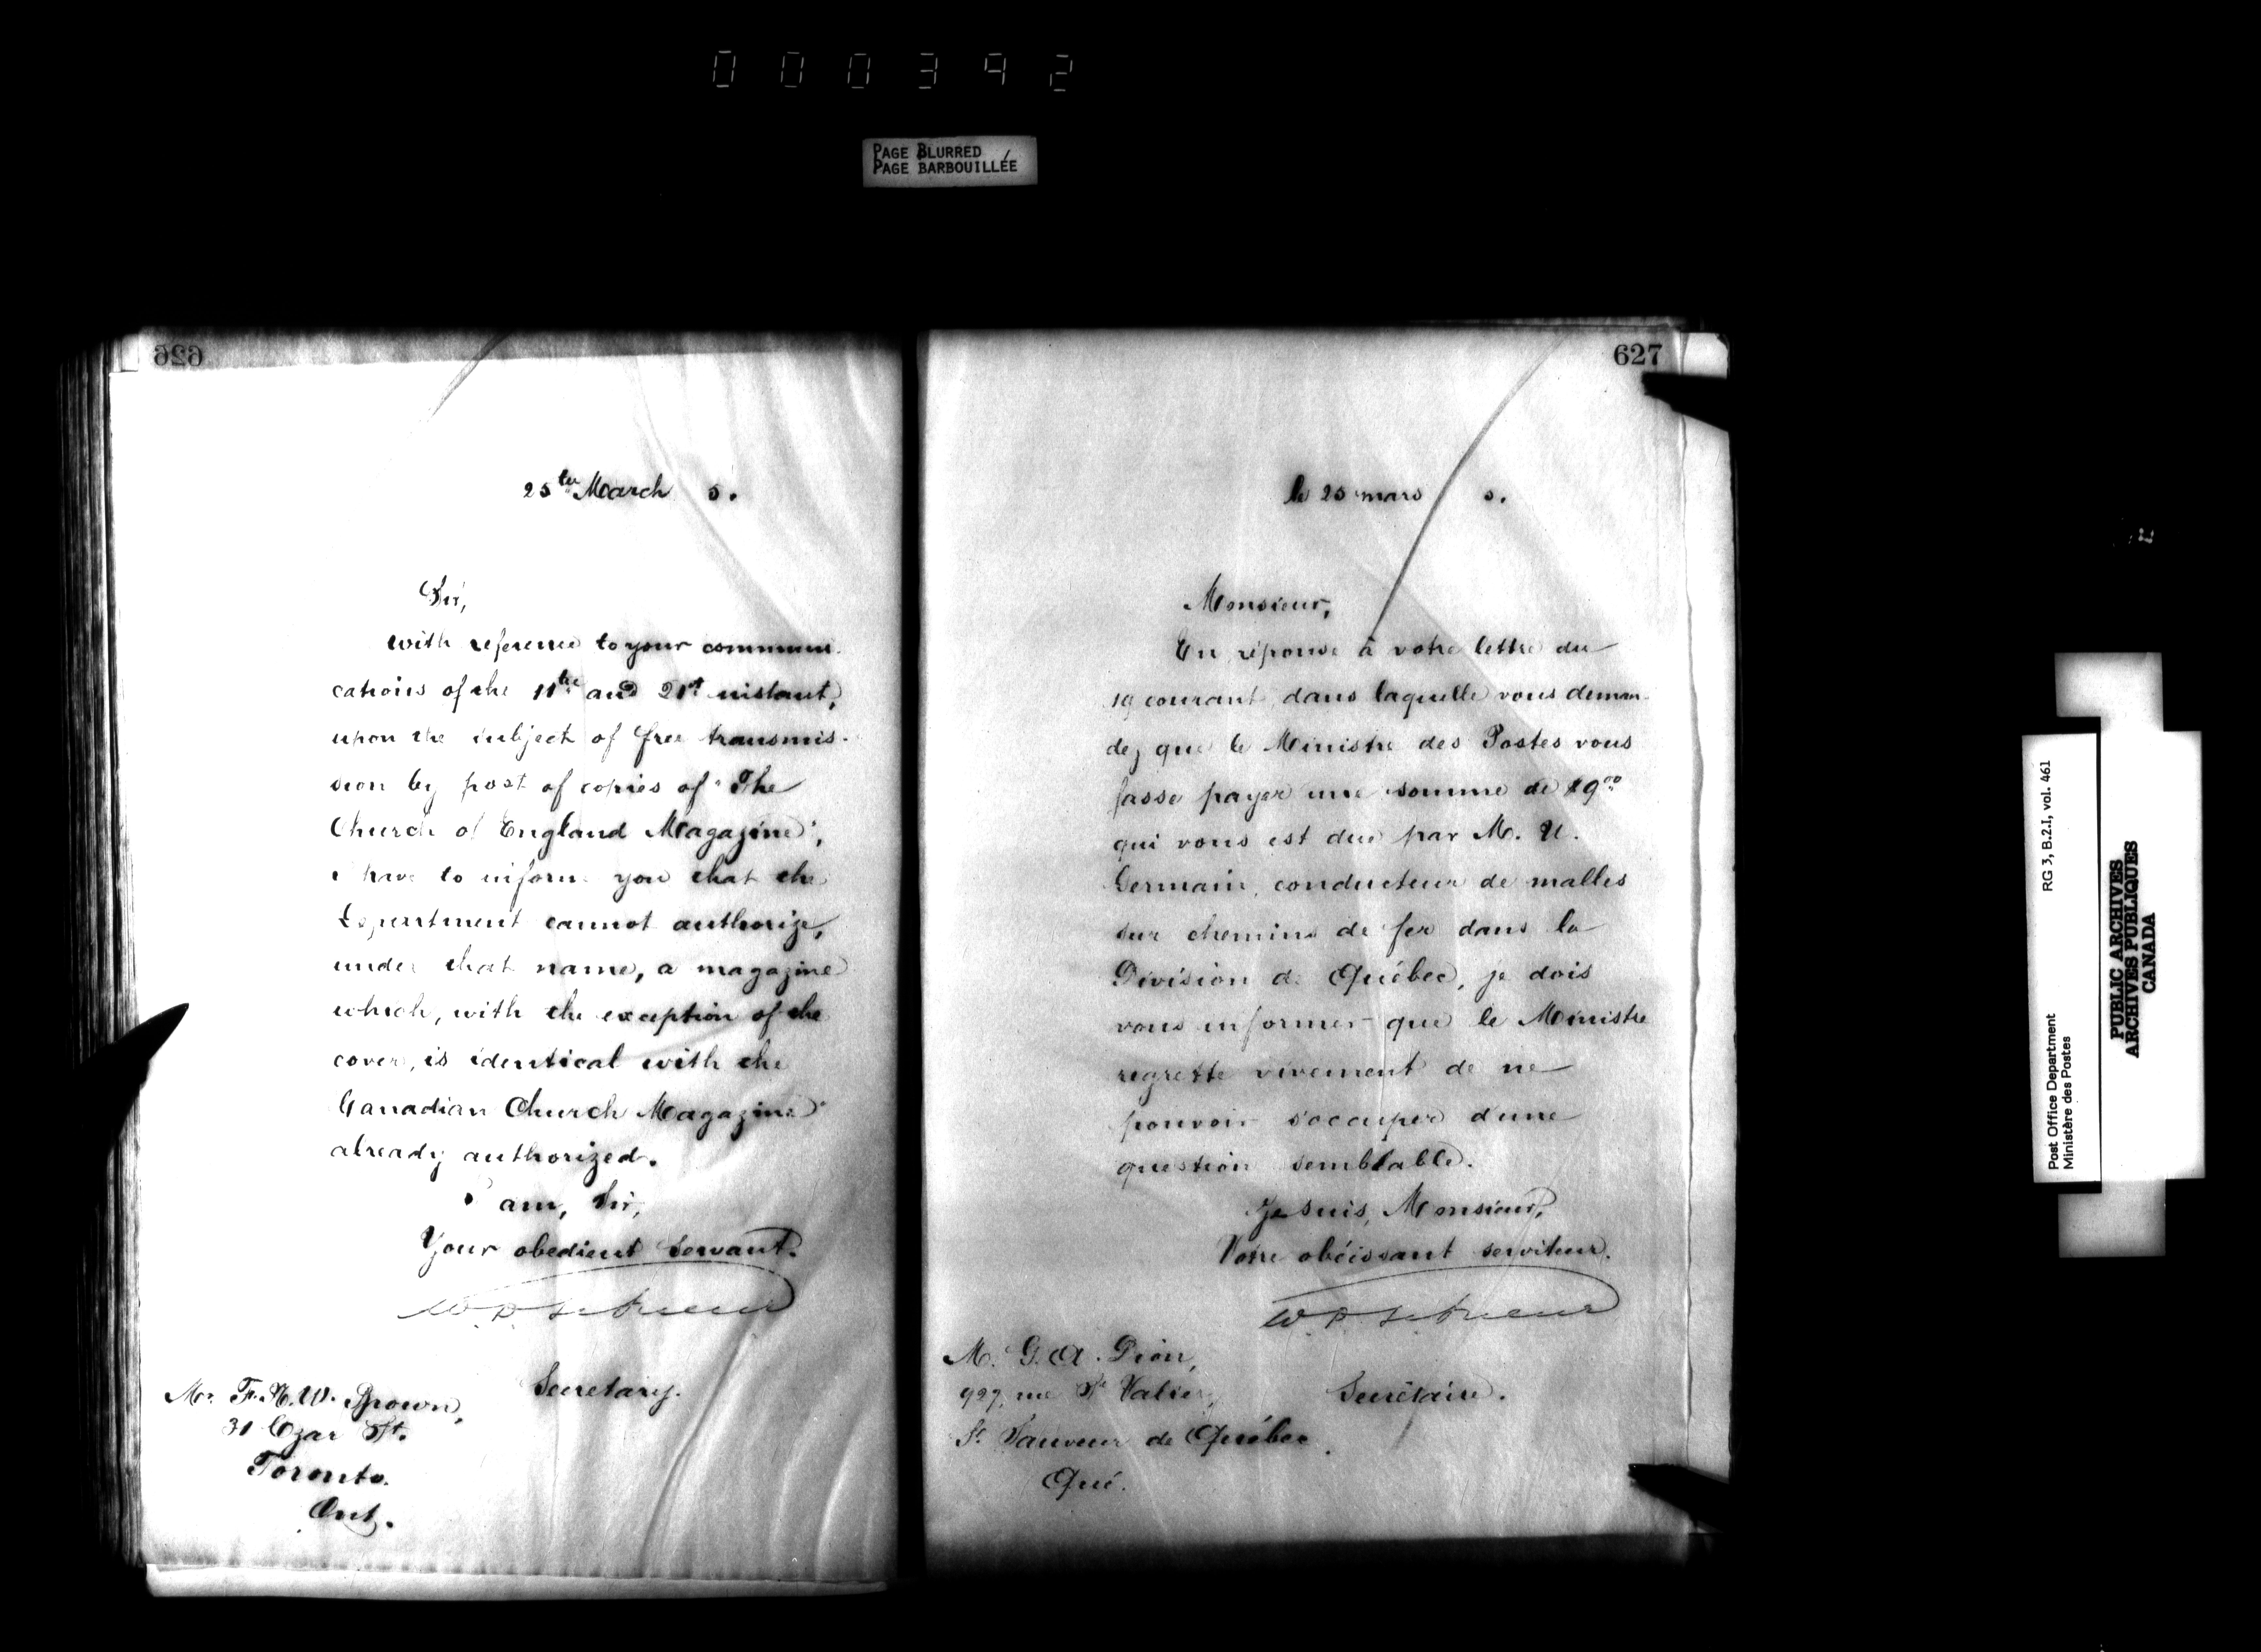 000392
PAGE BLURRED
PAGE BARBOUILLÉE
626
25th March 5.
Sir,
with reference to your communi-
cations of the 11th and 21st instant,
upon the subject of free transmis-
sion by post of copies of "The
Church of England Magazine",
I have to inform you that the
Department cannot authorize,
under that name, a magazine
which, with the exception of the
cover, is identical with the
"Canadian Church Magazine"
already authorized.
I am, Sir,
Your obedient Servant.
Secretary.
Mr. F. N. W. Brown,
31 Czar St.
Toronto.
Ont.
627
le 25 mars 5.
Monsieur,
En réponse à votre lettre du
19 courant, dans laquelle vous deman-
dez que le Ministre des Postes vous
fasse payer une somme de $9.00
qui vous est due par M. U.
Germain, conducteur de malles
sur chemins de fer dans la
Division de Québec, je dois
vous informer que le Ministre
regrette vivement de ne
pouvoir s'occuper d'une
question semblable.
Je suis, Monsieur,
Votre obéissant serviteur.
Secrétaire.
M. G. A. Dion,
927, rue St Valier,
St. Sauveur de Québec.
Qué.
RG 3, B.2.I, vol. 461
Post Office Department
Ministère des Postes
PUBLIC ARCHIVES
ARCHIVES PUBLIQUES
CANADA